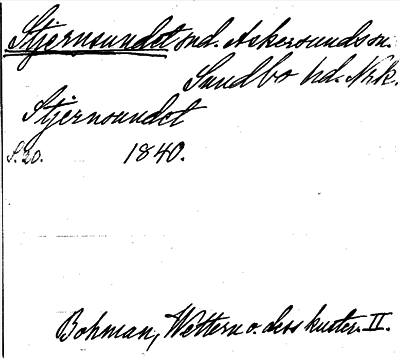 Stjernsundet snd. Askersunds sn.
Sundbo hd. Nrk.
Stjernsundet
S. 20. 1840.
Bohman, Wettern o. dess kuster. II.